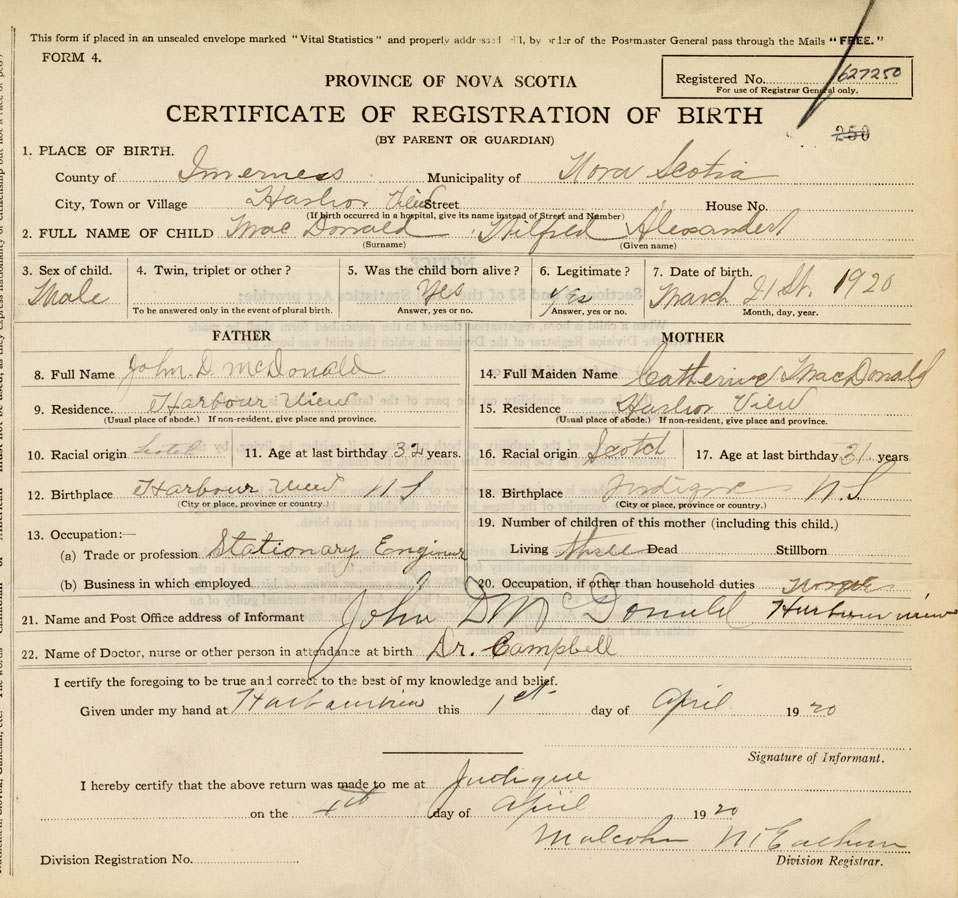 This form if placed in an unsealed envelope marked "Vital Statistics" and properly addressed will, by order of the Postmaster General pass through the Mails "FREE."
FORM 4.
PROVINCE OF NOVA SCOTIA
Registered No. 627250
For use of Registrar General only.
CERTIFICATE OF REGISTRATION OF BIRTH
250
(BY PARENT OR GUARDIAN)
1. PLACE OF BIRTH.
County of Inverness Municipality of Nova Scotia
City, Town or Village Harbor View Street House No.
(If birth occurred in a hospital, give its name instead of Street and Number)
2. FULL NAME OF CHILD Mac Donald Wilfred Alexander
(Surname) (Given name)
3. Sex of child. 4. Twin, triplet or other? 5. Was the child born alive? 6. Legitimate? 7. Date of birth.
Male Yes Yes March 21 St. 1920
To be answered only in the event of plural birth. Answer, yes or no. Answer, yes or no. Month, day, year.
FATHER MOTHER
8. Full Name John D McDonald 14. Full Maiden Name Catherine MacDonald
9. Residence. Harbour View 15. Residence Harbor View
(Usual place of abode.) If non-resident, give place and province. (Usual place of abode.) If non-resident, give place and province.
10. Racial origin 11. Age at last birthday 32 years. 16. Racial origin Scotch 17. Age at last birthday 31 years
12. Birthplace Harbour View N S 18. Birthplace Judique N.S.
(City or place, province or country.) (City or place, province or country.)
19. Number of children of this mother (including this child.)
13. Occupation:—
(a) Trade or profession Stationary Engineer Living Three Dead Stillborn
(b) Business in which employed 20. Occupation, if other than household duties
21. Name and Post Office address of Informant John D McDonald Harbourview
22. Name of Doctor, nurse or other person in attendance at birth Dr. Campbell
I certify the foregoing to be true and correct to the best of my knowledge and belief.
Given under my hand at Harbourview this 1st day of April 1920
Signature of Informant.
I hereby certify that the above return was made to me at Judique
on the day of April 1920
Malcolm
Division Registration No. Division Registrar.